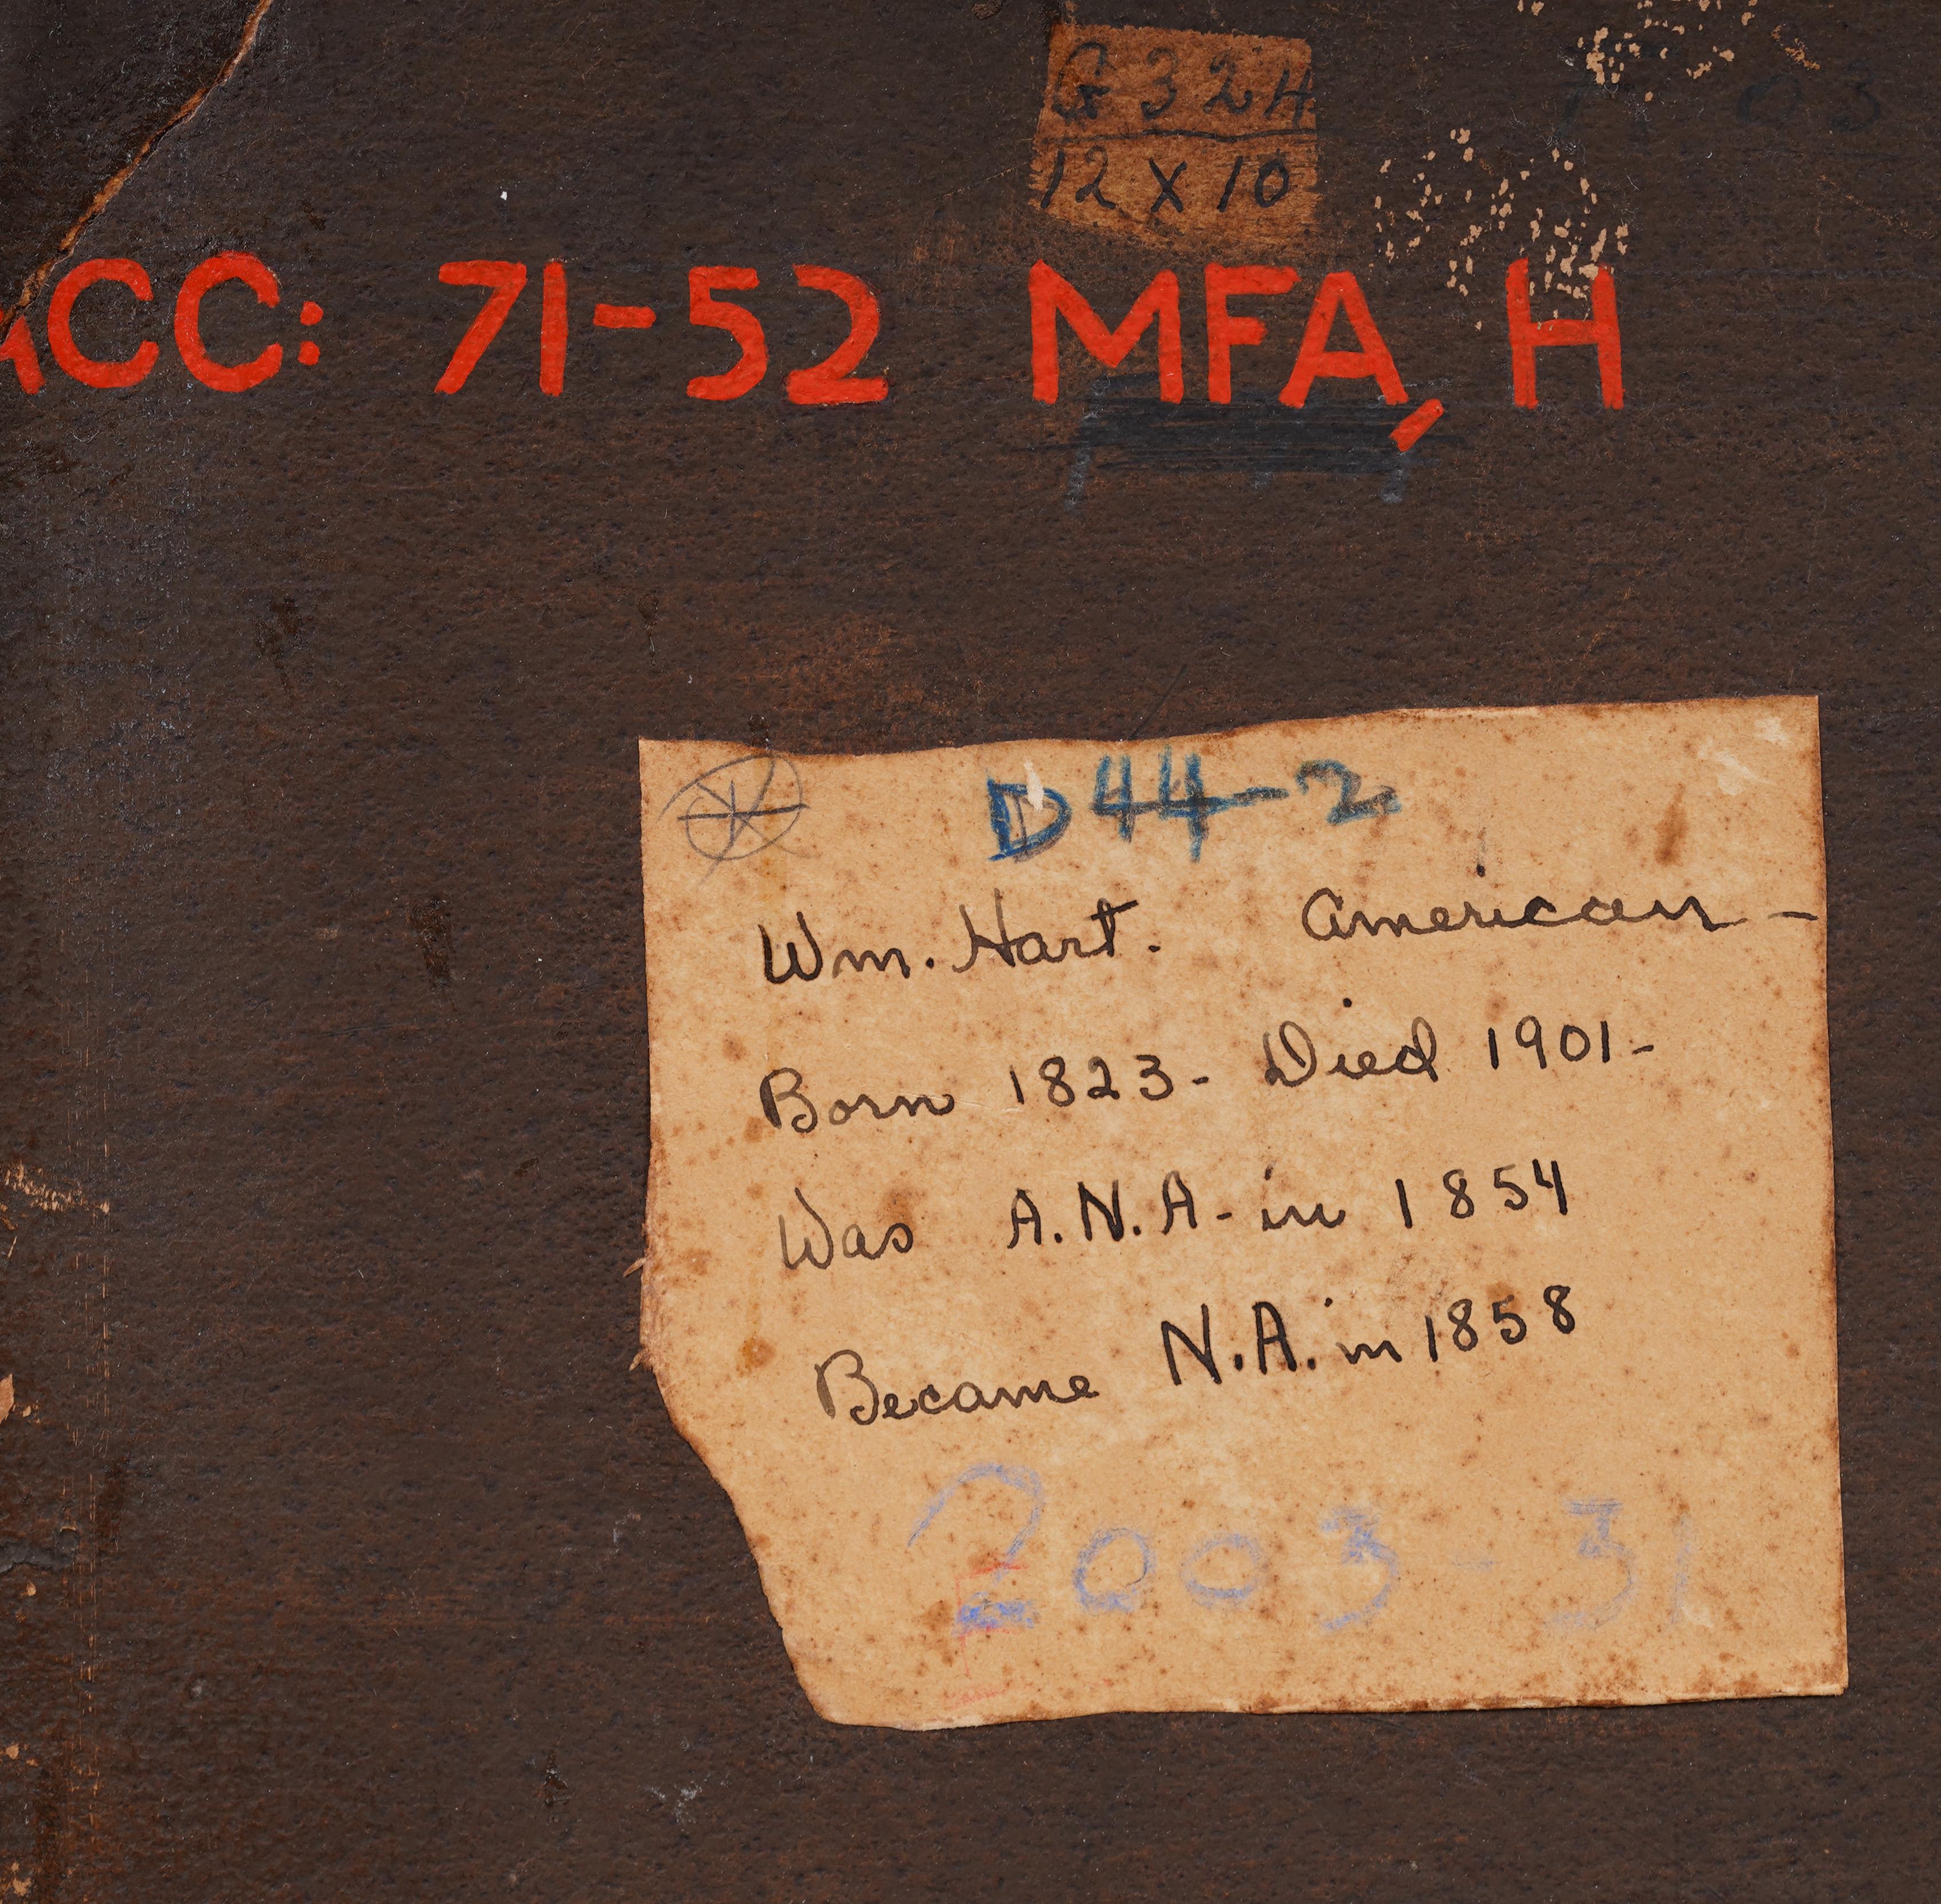 G324
12 x 10
ACC: 71-52 MFA, H
D44-2
Wm. Hart. American -
Born 1823 - Died 1901 -
Was A.N.A - in 1854
Became N.A. in 1858
2003-31